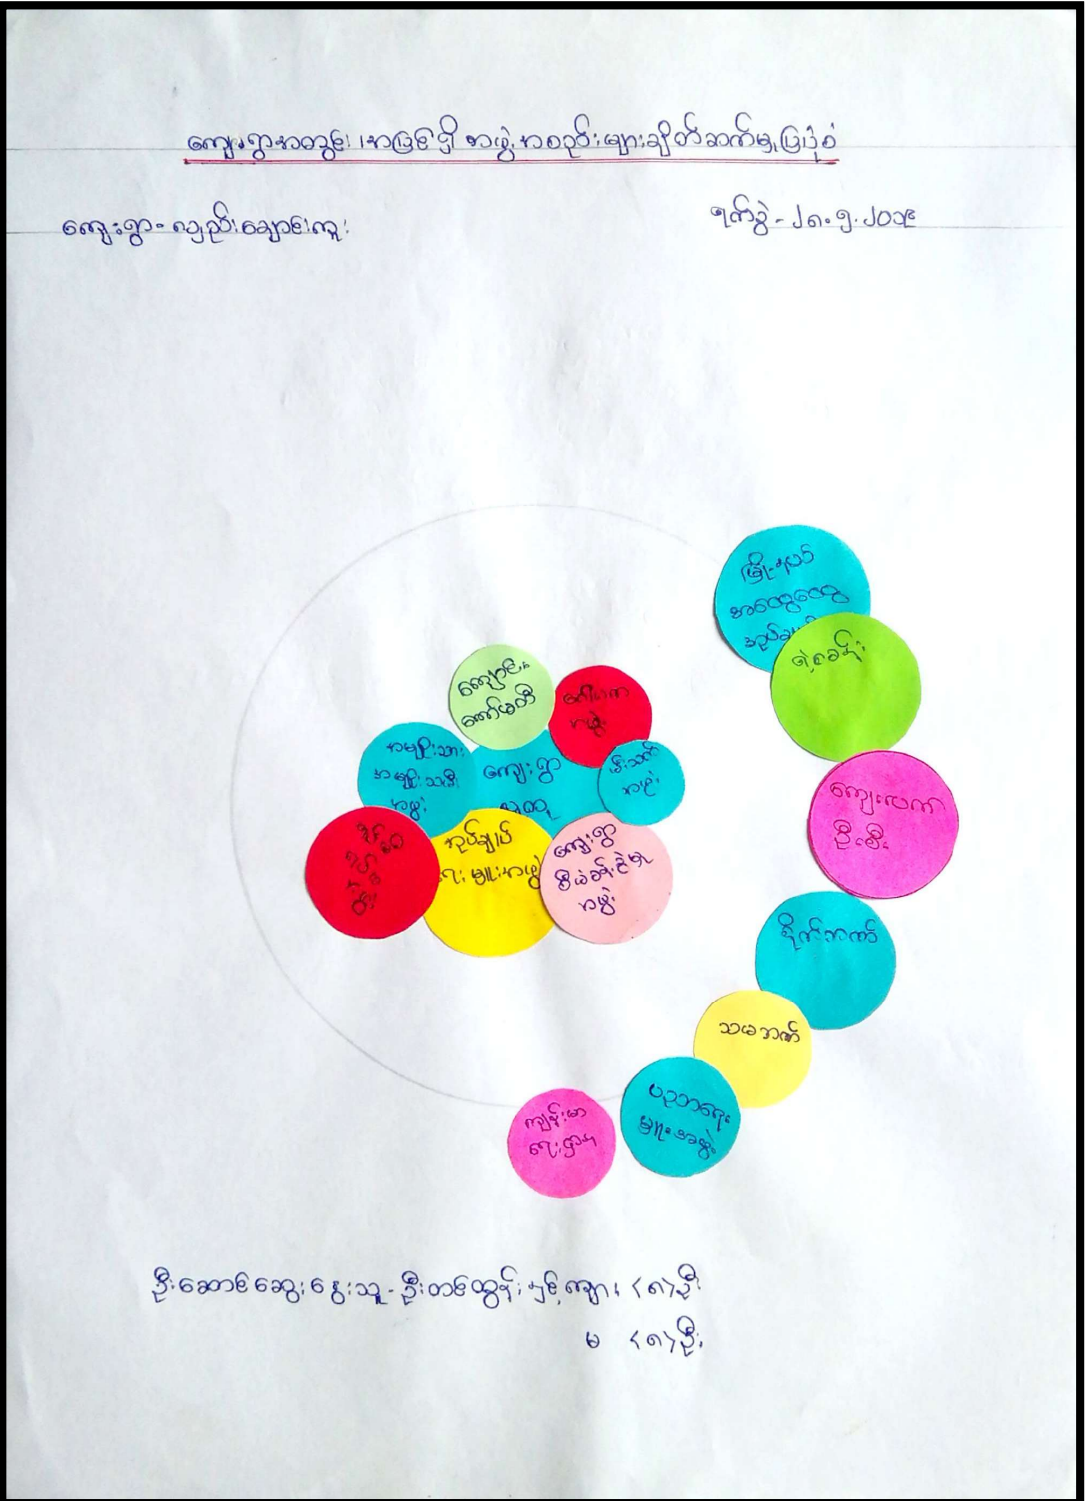 ကျေးရွာအတွင်း၊အပြင်ရှိ အဖွဲ့အစည်းများချိတ်ဆက်မှုပြပုံစံ
ကျေးရွာ- လှည်းချောင်းကူး
ရက်စွဲ - ၂၈.၅.၂၀၁၉
မြို့နယ်
အထွေထွေ
အုပ်ချုပ်
ရဲစခန်း
ကျေးလက်
ဦးစီး
စိုက်ဘဏ်
သမဘဏ်
ပညာရေး
မှူးအဖွဲ့
ကျန်းမာ
ရေးဌာန
ကျောင်း
ကော်မတီ
ဂေါပက
အဖွဲ့
မီးသတ်
အဖွဲ့
အမျိုးသား
အမျိုးသမီး
အဖွဲ့
ကျေးရွာ
လူထု
အုပ်ချုပ်
ရေးမှူးအဖွဲ့
ကျေးရွာ
စီမံခန့်ခွဲမှု
အဖွဲ့
ဦးဆောင်ဆွေးနွေးသူ - ဦးတင်ထွန်းနှင့် ကျား <၈>ဦး
မ <၈>ဦး